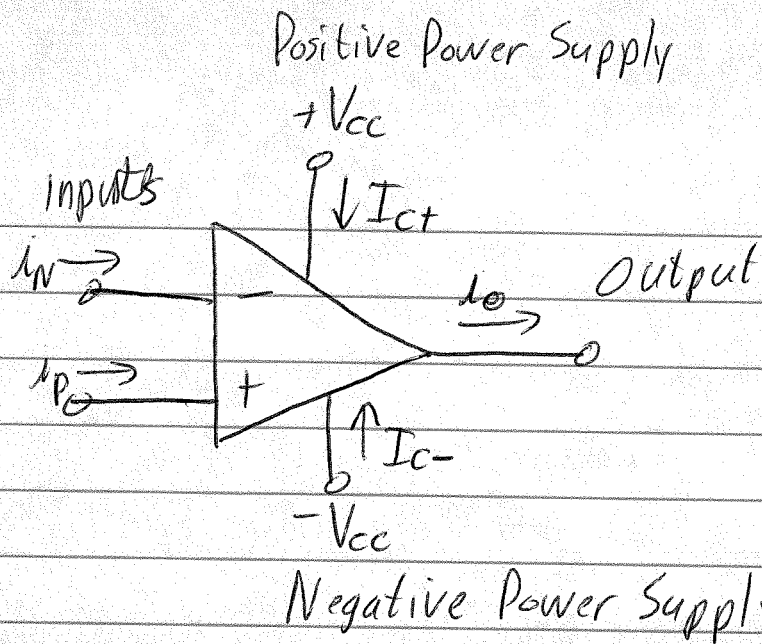 Positive Power Supply
+Vcc
inputs
↓ Ic+
iN →
−
io →
Output
iP →
+
↑ Ic−
−Vcc
Negative Power Suppl